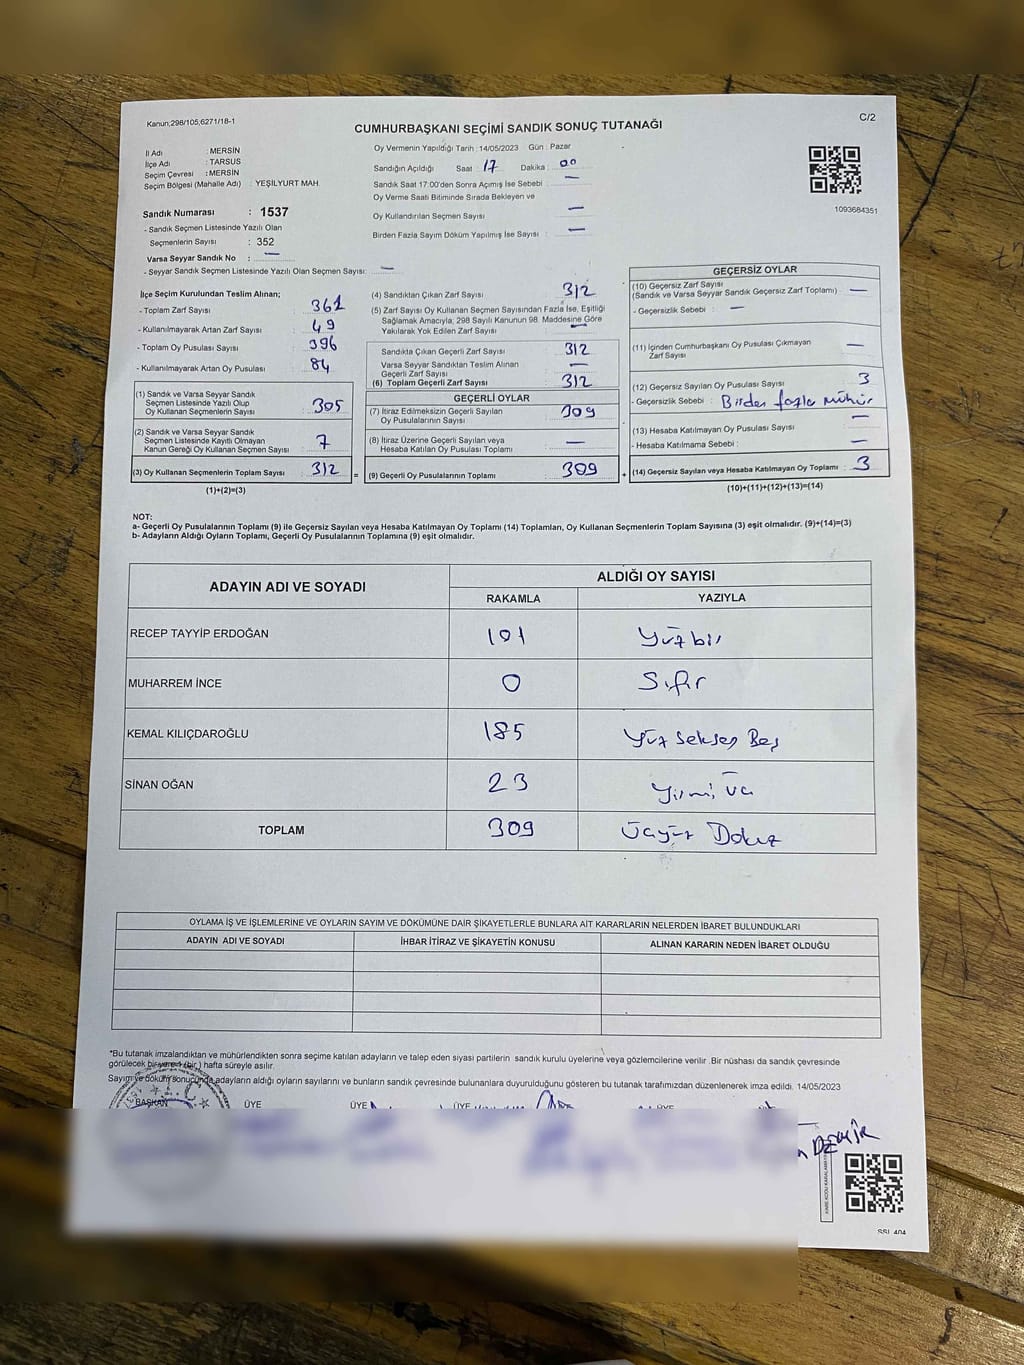 Kanun;298/105,6271/18-1
C/2
CUMHURBAŞKANI SEÇİMİ SANDIK SONUÇ TUTANAĞI
İl Adı : MERSİN
İlçe Adı : TARSUS
Seçim Çevresi : MERSİN
Seçim Bölgesi (Mahalle Adı) : YEŞİLYURT MAH.
Sandık Numarası : 1537
- Sandık Seçmen Listesinde Yazılı Olan
Seçmenlerin Sayısı : 352
Varsa Seyyar Sandık No : —
- Seyyar Sandık Seçmen Listesinde Yazılı Olan Seçmen Sayısı: —
Oy Vermenin Yapıldığı Tarih : 14/05/2023 Gün : Pazar
Sandığın Açıldığı Saat : 17 Dakika : 00
Sandık Saat 17:00'den Sonra Açımış İse Sebebi : —
Oy Verme Saati Bitiminde Sırada Bekleyen ve
Oy Kullandırılan Seçmen Sayısı —
Birden Fazla Sayım Döküm Yapılmış İse Sayısı : —
1093684351
İlçe Seçim Kurulundan Teslim Alınan;
- Toplam Zarf Sayısı : 361
- Kullanılmayarak Artan Zarf Sayısı : 49
- Toplam Oy Pusulası Sayısı : 396
- Kullanılmayarak Artan Oy Pusulası : 84
(1) Sandık ve Varsa Seyyar Sandık
Seçmen Listesinde Yazılı Olup
Oy Kullanan Seçmenlerin Sayısı : 305
(2) Sandık ve Varsa Seyyar Sandık
Seçmen Listesinde Kayıtlı Olmayan
Kanun Gereği Oy Kullanan Seçmen Sayısı : 7
(3) Oy Kullanan Seçmenlerin Toplam Sayısı : 312 =
(1)+(2)=(3)
(4) Sandıktan Çıkan Zarf Sayısı : 312
(5) Zarf Sayısı Oy Kullanan Seçmen Sayısından Fazla İse, Eşitliği
Sağlamak Amacıyla, 298 Sayılı Kanunun 98. Maddesine Göre
Yakılarak Yok Edilen Zarf Sayısı : —
Sandıkta Çıkan Geçerli Zarf Sayısı : 312
Varsa Seyyar Sandıktan Teslim Alınan
Geçerli Zarf Sayısı : —
(6) Toplam Geçerli Zarf Sayısı : 312
GEÇERLİ OYLAR
(7) İtiraz Edilmeksizin Geçerli Sayılan
Oy Pusulalarının Sayısı : 309
(8) İtiraz Üzerine Geçerli Sayılan veya
Hesaba Katılan Oy Pusulası Toplamı : —
(9) Geçerli Oy Pusulalarının Toplamı : 309 +
GEÇERSİZ OYLAR
(10) Geçersiz Zarf Sayısı
(Sandık ve Varsa Seyyar Sandık Geçersiz Zarf Toplamı) : —
- Geçersizlik Sebebi : —
(11) İçinden Cumhurbaşkanı Oy Pusulası Çıkmayan
Zarf Sayısı : —
(12) Geçersiz Sayılan Oy Pusulası Sayısı : 3
- Geçersizlik Sebebi : Birden fazla mühür
(13) Hesaba Katılmayan Oy Pusulası Sayısı : —
- Hesaba Katılmama Sebebi : —
(14) Geçersiz Sayılan veya Hesaba Katılmayan Oy Toplamı : 3
(10)+(11)+(12)+(13)=(14)
NOT:
a- Geçerli Oy Pusulalarının Toplamı (9) ile Geçersiz Sayılan veya Hesaba Katılmayan Oy Toplamı (14) Toplamları, Oy Kullanan Seçmenlerin Toplam Sayısına (3) eşit olmalıdır. (9)+(14)=(3)
b- Adayların Aldığı Oyların Toplamı, Geçerli Oy Pusulalarının Toplamına (9) eşit olmalıdır.
ADAYIN ADI VE SOYADI ALDIĞI OY SAYISI
RAKAMLA YAZIYLA
RECEP TAYYİP ERDOĞAN 101 Yüzbir
MUHARREM İNCE 0 Sıfır
KEMAL KILIÇDAROĞLU 185 Yüz Seksen Beş
SİNAN OĞAN 23 Yirmi üç
TOPLAM 309 Üçyüz Dokuz
OYLAMA İŞ VE İŞLEMLERİNE VE OYLARIN SAYIM VE DÖKÜMÜNE DAİR ŞİKAYETLERLE BUNLARA AİT KARARLARIN NELERDEN İBARET BULUNDUKLARI
ADAYIN ADI VE SOYADI İHBAR İTİRAZ VE ŞİKAYETİN KONUSU ALINAN KARARIN NEDEN İBARET OLDUĞU
*Bu tutanak imzalandıktan ve mühürlendikten sonra seçime katılan adayların ve talep eden siyasi partilerin sandık kurulu üyelerine veya gözlemcilerine verilir .Bir nüshası da sandık çevresinde
görülecek bir yere 1 (bir ) hafta süreyle asılır.
Sayım ve döküm sonucunda adayların aldığı oyların sayılarını ve bunların sandık çevresinde bulunanlara duyurulduğunu gösteren bu tutanak tarafımızdan düzenlenerek imza edildi. 14/05/2023
BAŞKAN ÜYE ÜYE ÜYE ÜYE
SSI_404